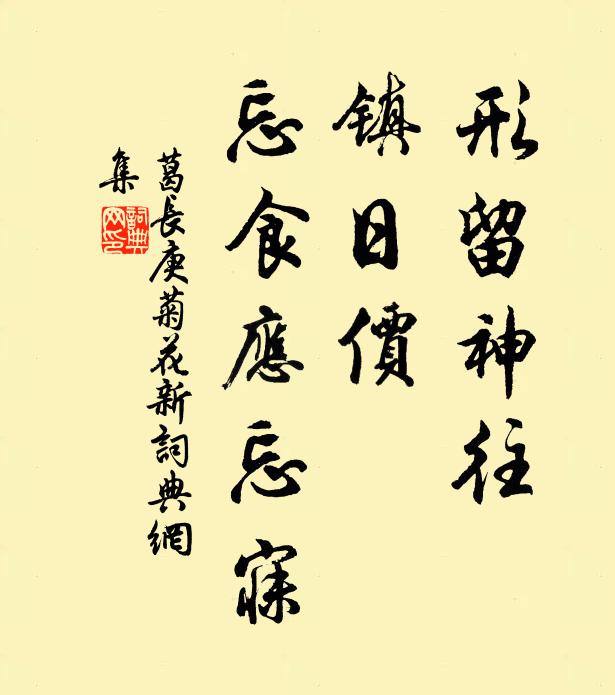 形留神往
鎮日價
忘食應忘寐
葛長庚菊花新詞典網
集
詞典
网印